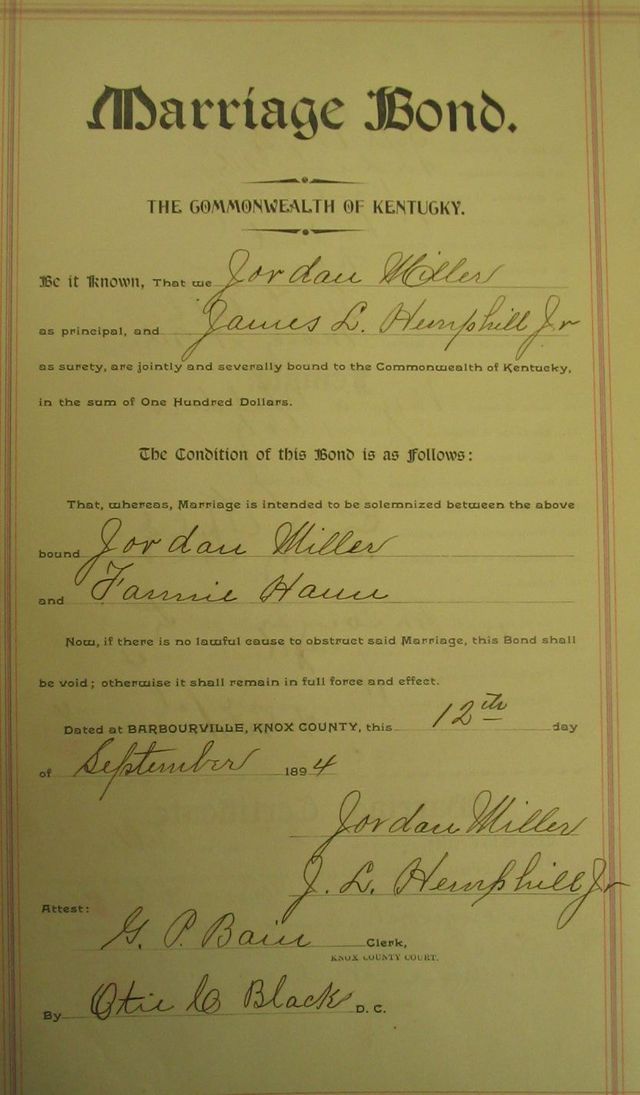 Marriage Bond.
THE COMMONWEALTH OF KENTUCKY.
Be it Known, That we Jordan Miller
as principal, and James L. Hemphill Jr
as surety, are jointly and severally bound to the Commonwealth of Kentucky,
in the sum of One Hundred Dollars.
The Condition of this Bond is as Follows:
That, whereas, Marriage is intended to be solemnized between the above
bound Jordan Miller
and Fannie Haun
Now, if there is no lawful cause to obstruct said Marriage, this Bond shall
be void; otherwise it shall remain in full force and effect.
Dated at BARBOURVILLE, KNOX COUNTY, this 12th day
of September 1894
Jordan Miller
J. L. Hemphill Jr
Attest:
G. P. Bain Clerk,
KNOX COUNTY COURT.
By Otie C Black D. C.